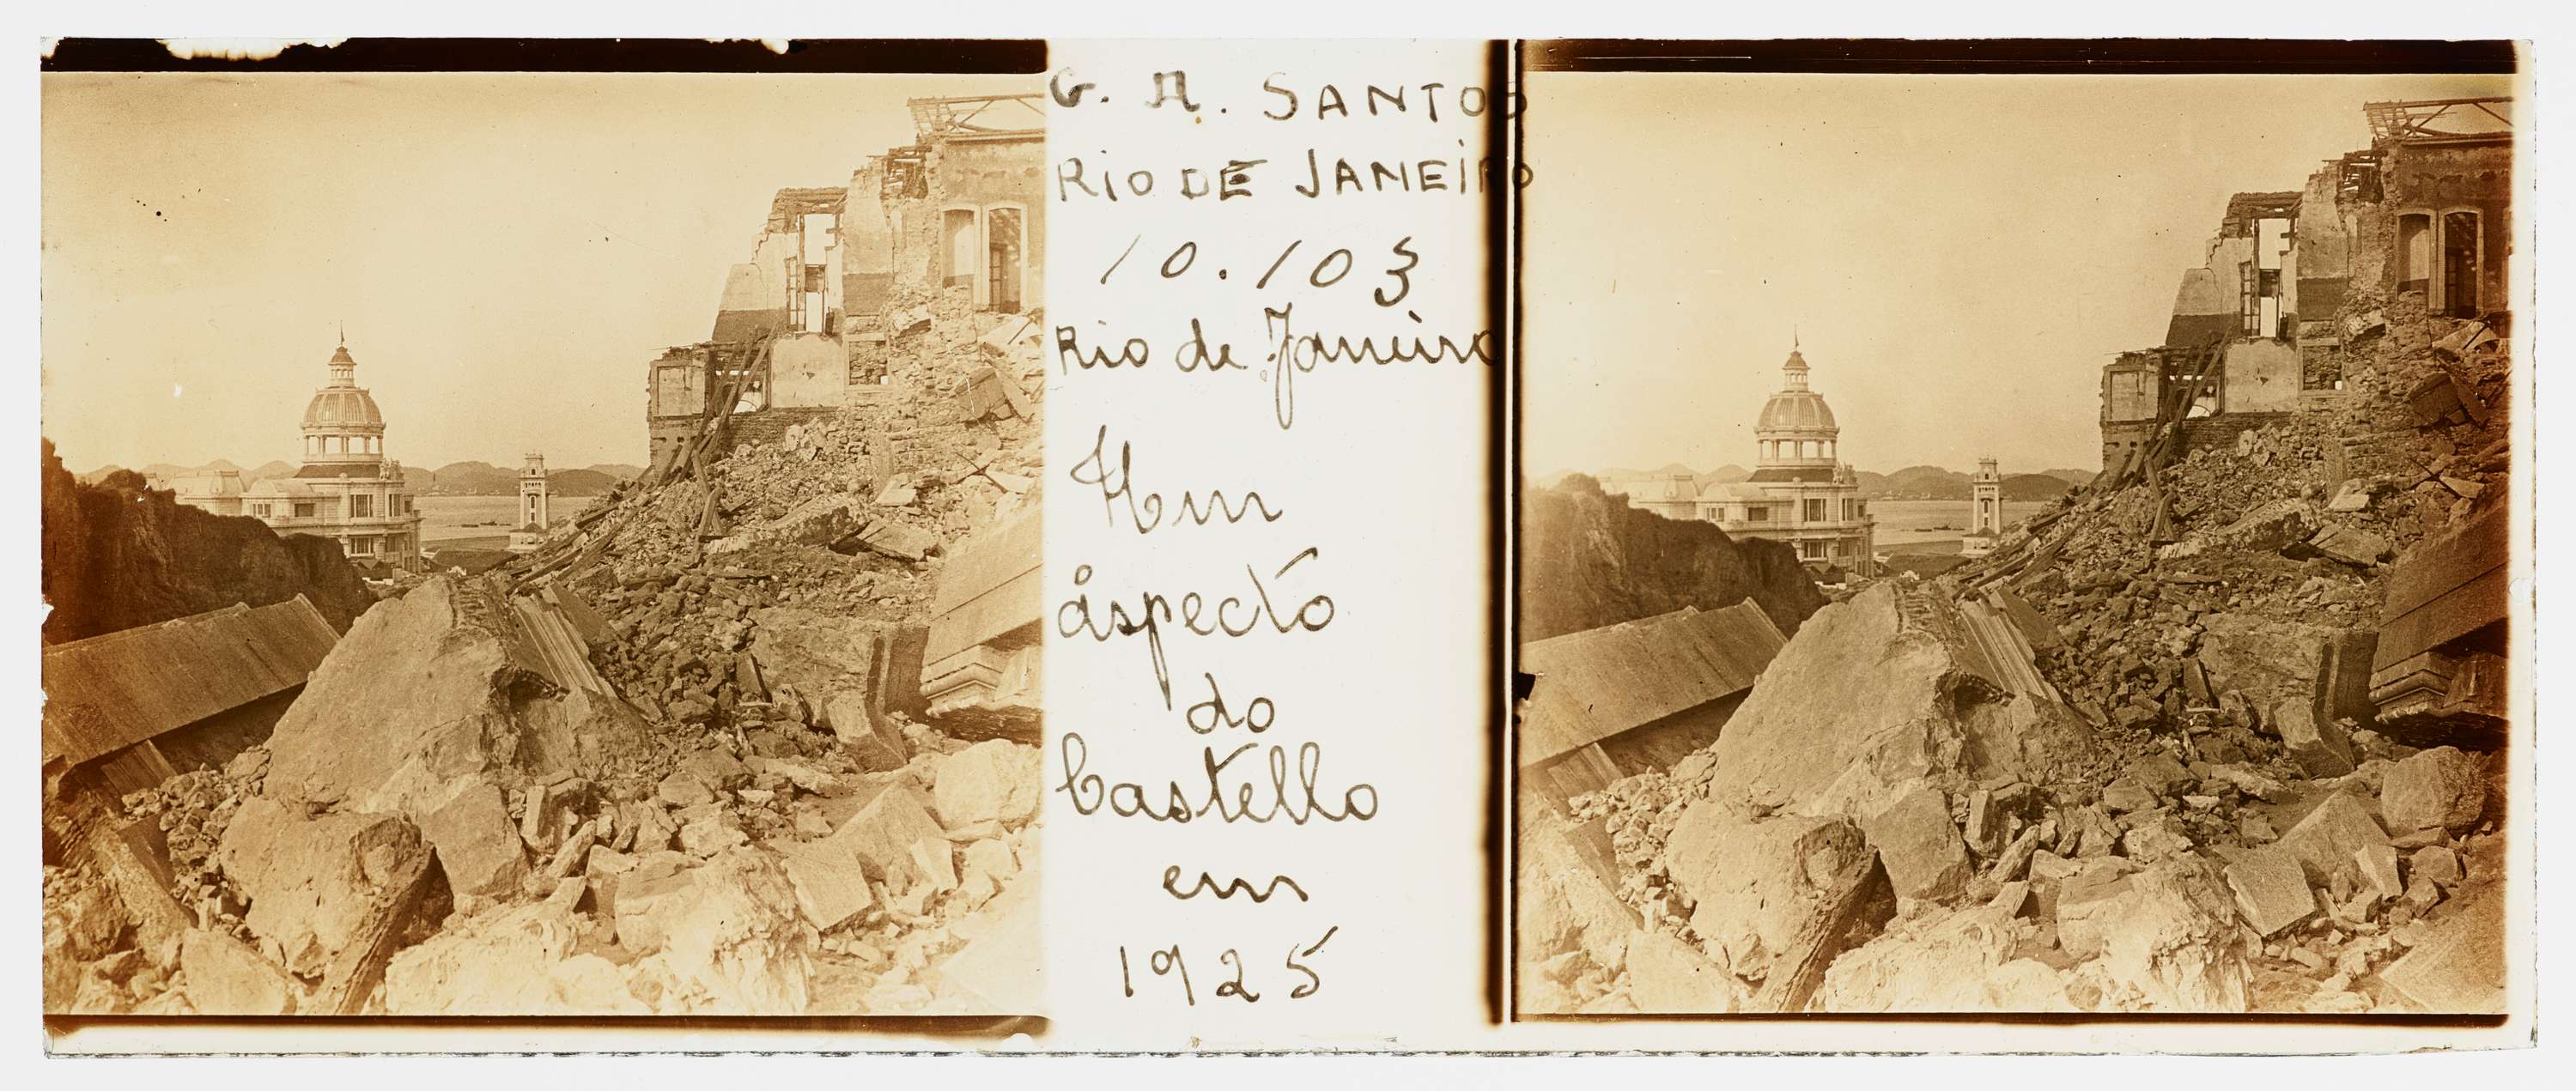 G. A. SANTOS
RIO DE JANEIRO
10.103
Rio de Janeiro
Um
áspecto
do
Castello
em
1925